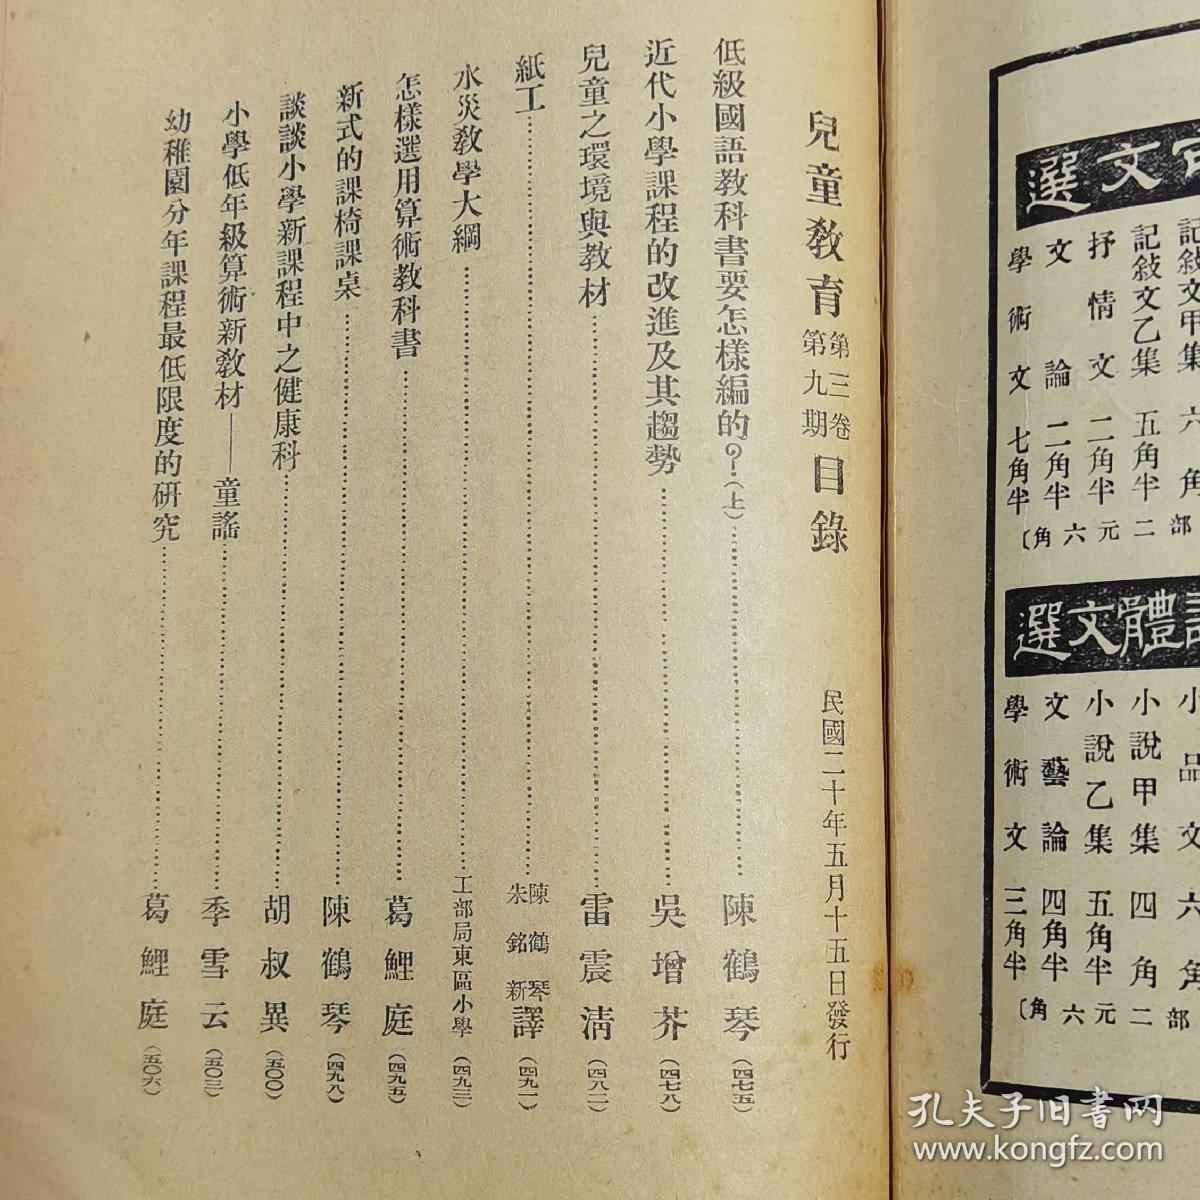 選文體
小品文 六角
小說甲集 四角
小說乙集 五角半
文藝論 四角半
學術文 三角半
部二元六角〕
選文
記敍文甲集 六角
記敍文乙集 五角半
抒情文 二角半
文論 二角半
學術文 七角半
部二元六角〕
兒童教育 第三卷 第九期 目錄 民國二十年五月十五日發行
低級國語教科書要怎樣編的?(上) 陳鶴琴 (四七五)
近代小學課程的改進及其趨勢 吳增芥 (四七八)
兒童之環境與教材 雷震清 (四八二)
紙工 陳鶴琴 朱銘新 譯 (四九一)
水災教學大綱 工部局東區小學 (四九三)
怎樣選用算術教科書 葛鯉庭 (四九五)
新式的課椅課桌 陳鶴琴 (四九八)
談談小學新課程中之健康科 胡叔異 (五〇〇)
小學低年級算術新教材——童謠 季雪云 (五〇三)
幼稚園分年課程最低限度的研究 葛鯉庭 (五〇六)
孔夫子旧書网
www.kongfz.com